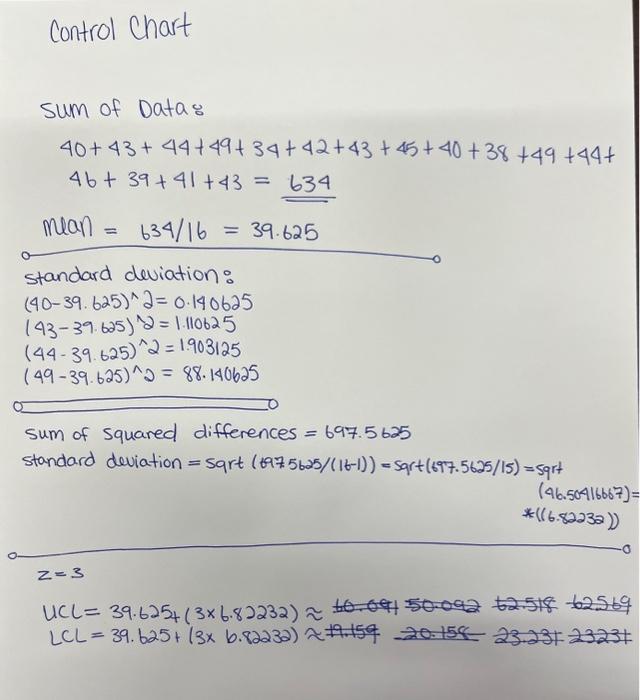 Control Chart
Sum of Data:
40+43+ 44+49+ 34+42+43+45+40+38+49+44+
46+39+41+43 = 634
mean = 634/16 = 39.625
standard deviation:
(40-39.625)^2= 0.140625
(43-39.625)^2= 1.110625
(44-39.625)^2=1903125
(49-39.625)^2 = 88.140625
sum of squared differences = 697.5625
standard deviation = sqrt (6975625/(16-1)) = sqrt(697.5625/15) = sqrt
(46.50416667)=
*((6.82232))
Z=3
UCL= 39.625+(3x6.82232) ≈ 60.091 50.092 62.518 62.569
LCL = 39.625+ (3x 6.82232) ≈ 19.159 20.158 23.231 23231